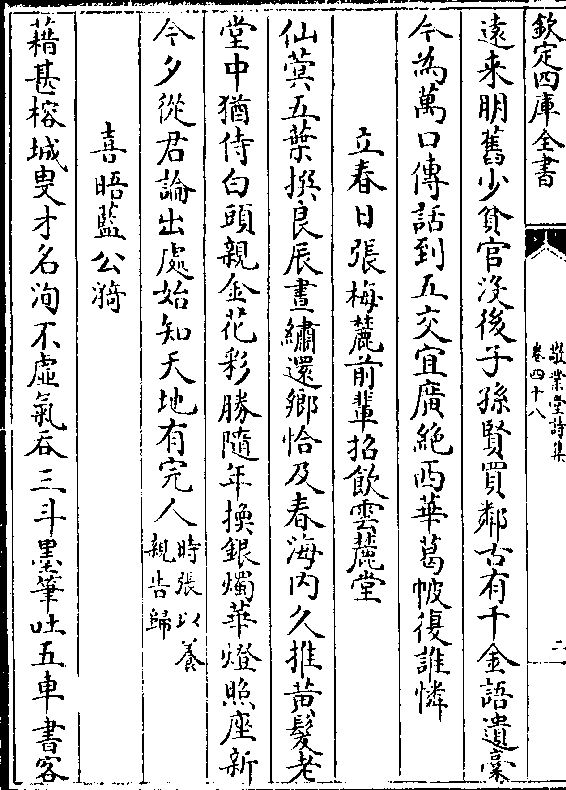 欽定四庫全書
敬業堂詩集
卷四十八
二
遠来朋舊少貧官没後子孫賢買鄰古有千金語遺藁
今為萬口傳話到五交宜廣絶西華葛帔復誰憐
立春日張梅麓前輩招飲雲麓堂
仙蓂五葉撰良辰晝繡還鄉恰及春海内久推黄髮老
堂中猶侍白頭親金花彩勝隨年換銀燭華燈照座新
今夕從君論出處始知天地有完人時張以養親告歸
喜晤藍公漪
藉甚榕城叟才名洵不虚氣吞三斗墨筆吐五車書客